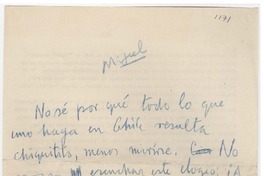 1171
Miguel
No sé por qué todo lo que
uno haga en Chile resulta
chiquitito, menos morirse. No
escuchar este elogio. ¡A